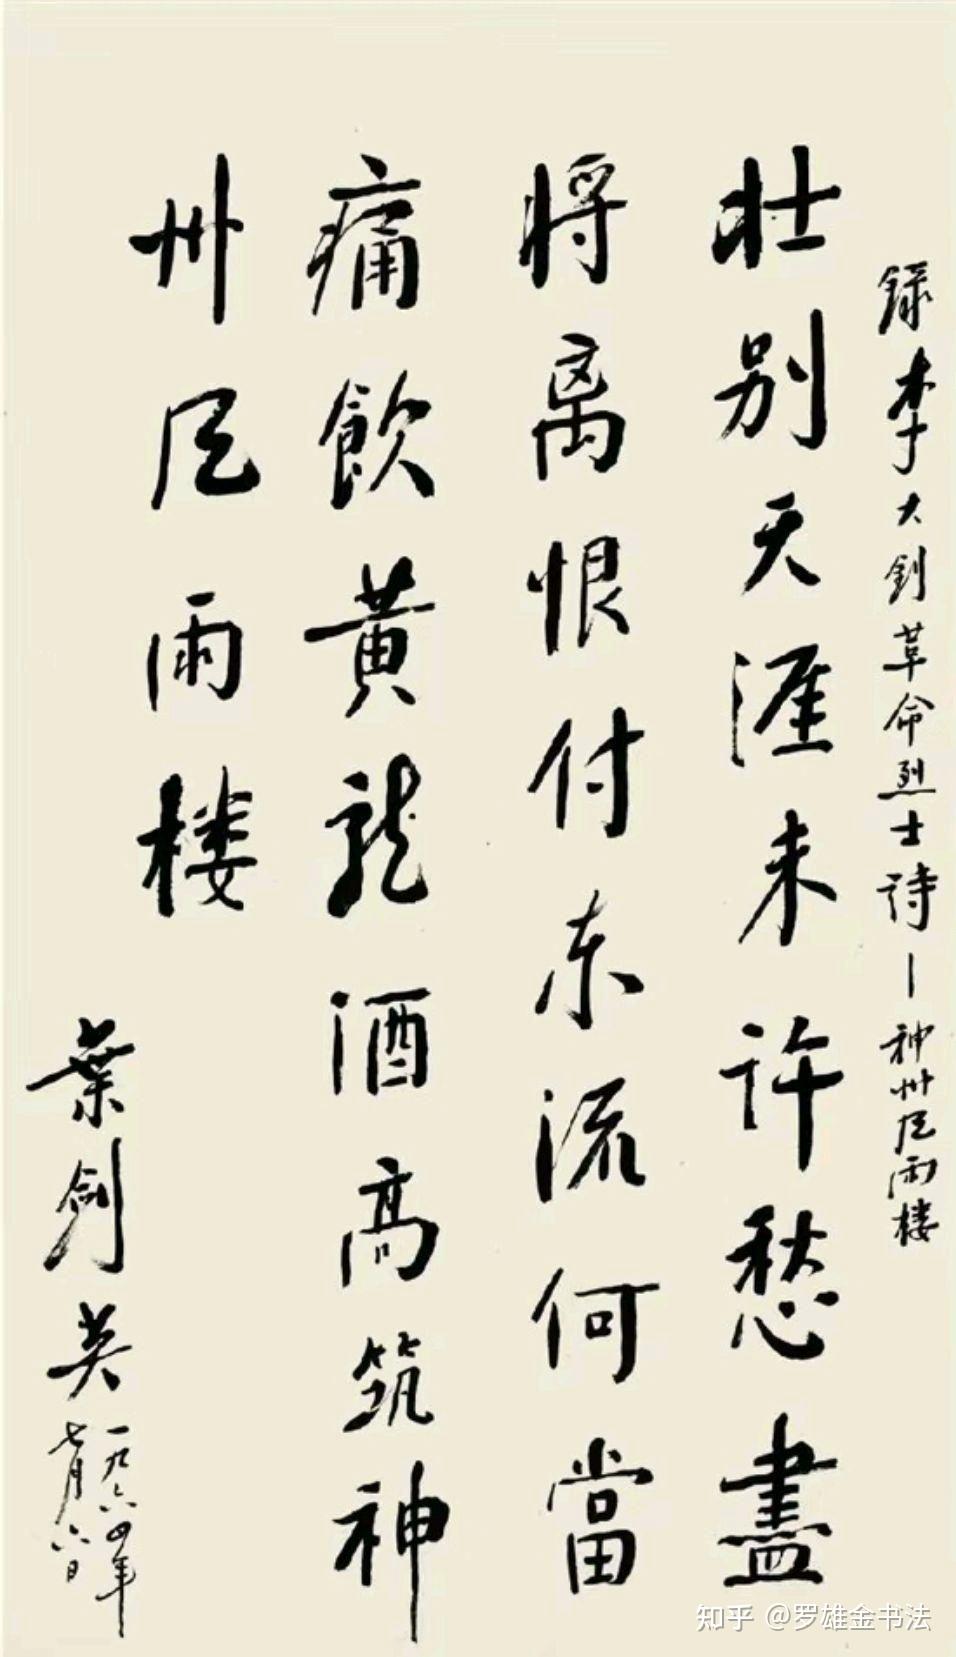 录李大钊革命烈士诗—神州风雨楼
壮别天涯未许愁盡
将离恨付东流何當
痛飲黄龙酒高筑神
州风雨楼
葉剑英
一九六四年
七月六日
知乎 @罗雄金书法